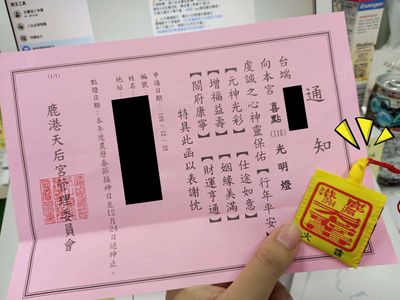 (1/1)
通知
台端
向本宮 喜點 (110) 光明燈
虔誠之心神靈保佑【行年平安】
【元神光彩】【仕途如意】
【增福益壽】【姻緣美滿】
【閤府康寧】【財運亨通】
特具此函以表謝忱
申請日期:109/12/25
編號:
姓名:
地址:
點燈日期:本年度農曆春節接神日至12月24日送神止。
鹿港天后宮管理委員會